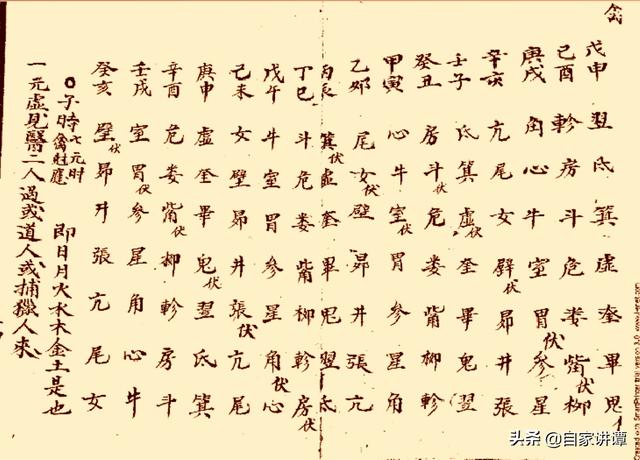 禽
戊申 翌 氐 箕 虛 奎 畢 鬼
己酉 軫 房 斗 危 娄 觜伏 柳
庚戌 角 心 牛 室 胃伏 參 星
辛亥 亢 尾 女 壁伏 昴 井 張
壬子 氐 箕 虛伏 奎 畢 鬼 翌
癸丑 房 斗伏 危 娄 觜 柳 軫
甲寅 心 牛 室伏 胃 參 星 角
乙卯 尾 女伏 壁 昴 井 張 亢
丙辰 箕伏 虛 奎 畢 鬼 翌 氐
丁巳 斗 危 娄 觜 柳 軫 房伏
戊午 牛 室 胃 參 星 角伏 心
己未 女 壁 昴 井 張伏 亢 尾
庚申 虛 奎 畢 鬼伏 翌 氐 箕
辛酉 危 娄 觜伏 柳 軫 房 斗
壬戌 室 胃伏 參 星 角 心 牛
癸亥 壁伏 昴 井 張 亢 尾 女
〇子時七元时禽尅應 即日月火水木金土是也
一元虛見醫二人過或道人或捕獵人來
头条 @自家讲谭